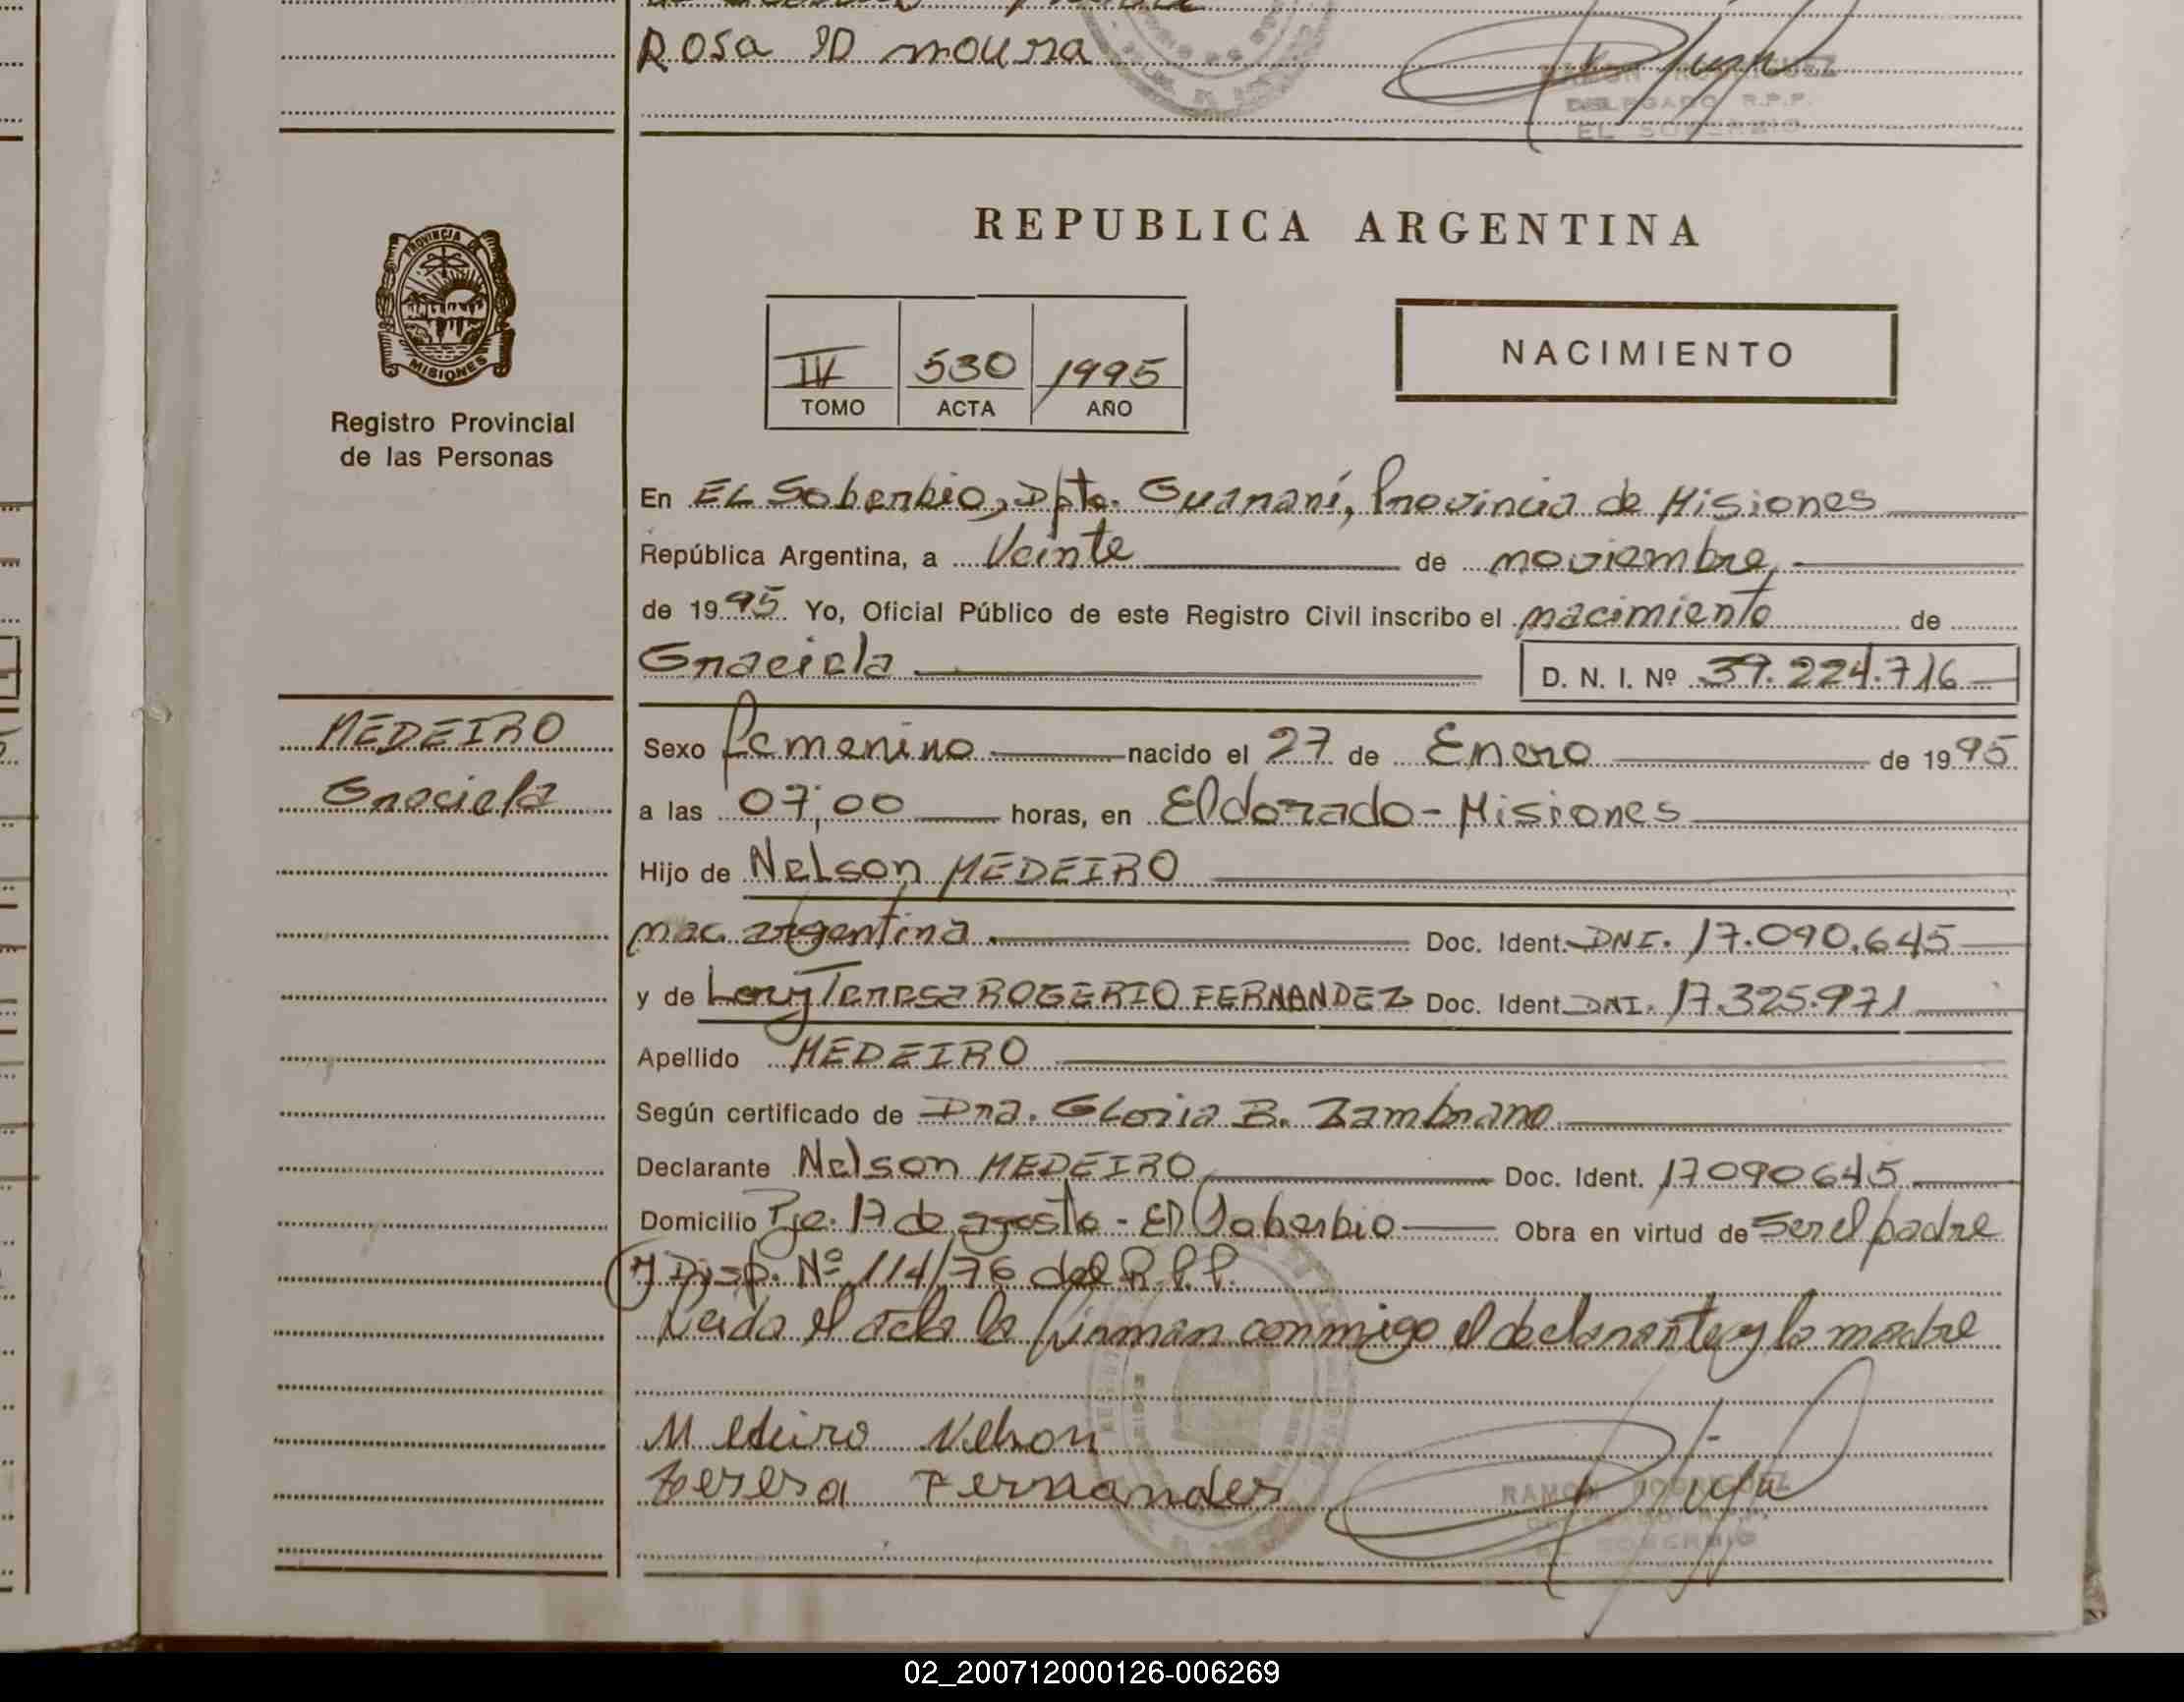 Rosa D moura
DELEGADO R.P.P.
EL SOBERBIO
REPUBLICA ARGENTINA
PROVINCIA DE
MISIONES
IV 530 1995
TOMO ACTA AÑO
NACIMIENTO
Registro Provincial
de las Personas
En EL Soberbio, Dpto. Guaraní, Provincia de Misiones
República Argentina, a Veinte de noviembre,
de 1995 Yo, Oficial Público de este Registro Civil inscribo el nacimiento de
Graciela D. N. I. Nº 39.224.716
MEDEIRO
Graciela
Sexo femenino nacido el 27 de Enero de 1995
a las 07,00 horas, en Eldorado - Misiones
Hijo de Nelson MEDEIRO
nac. argentina. Doc. Ident. DNI. 17.090.645
y de Lory Teresa ROGERIO FERNANDEZ Doc. Ident. DNI. 17.325.971
Apellido MEDEIRO
Según certificado de Dra. Gloria B. Zambrano
Declarante Nelson MEDEIRO Doc. Ident. 17090645
Domicilio Pje. 17 de agosto - El Soberbio Obra en virtud de Ser el padre
y Disp. Nº 114/76 del R.P.P.
Leida el acta la firman conmigo el declarante y la madre
Medeiro Nelson
Teresa Fernandes
RAMON RODRIGUEZ
SOBERBIO
02_200712000126-006269